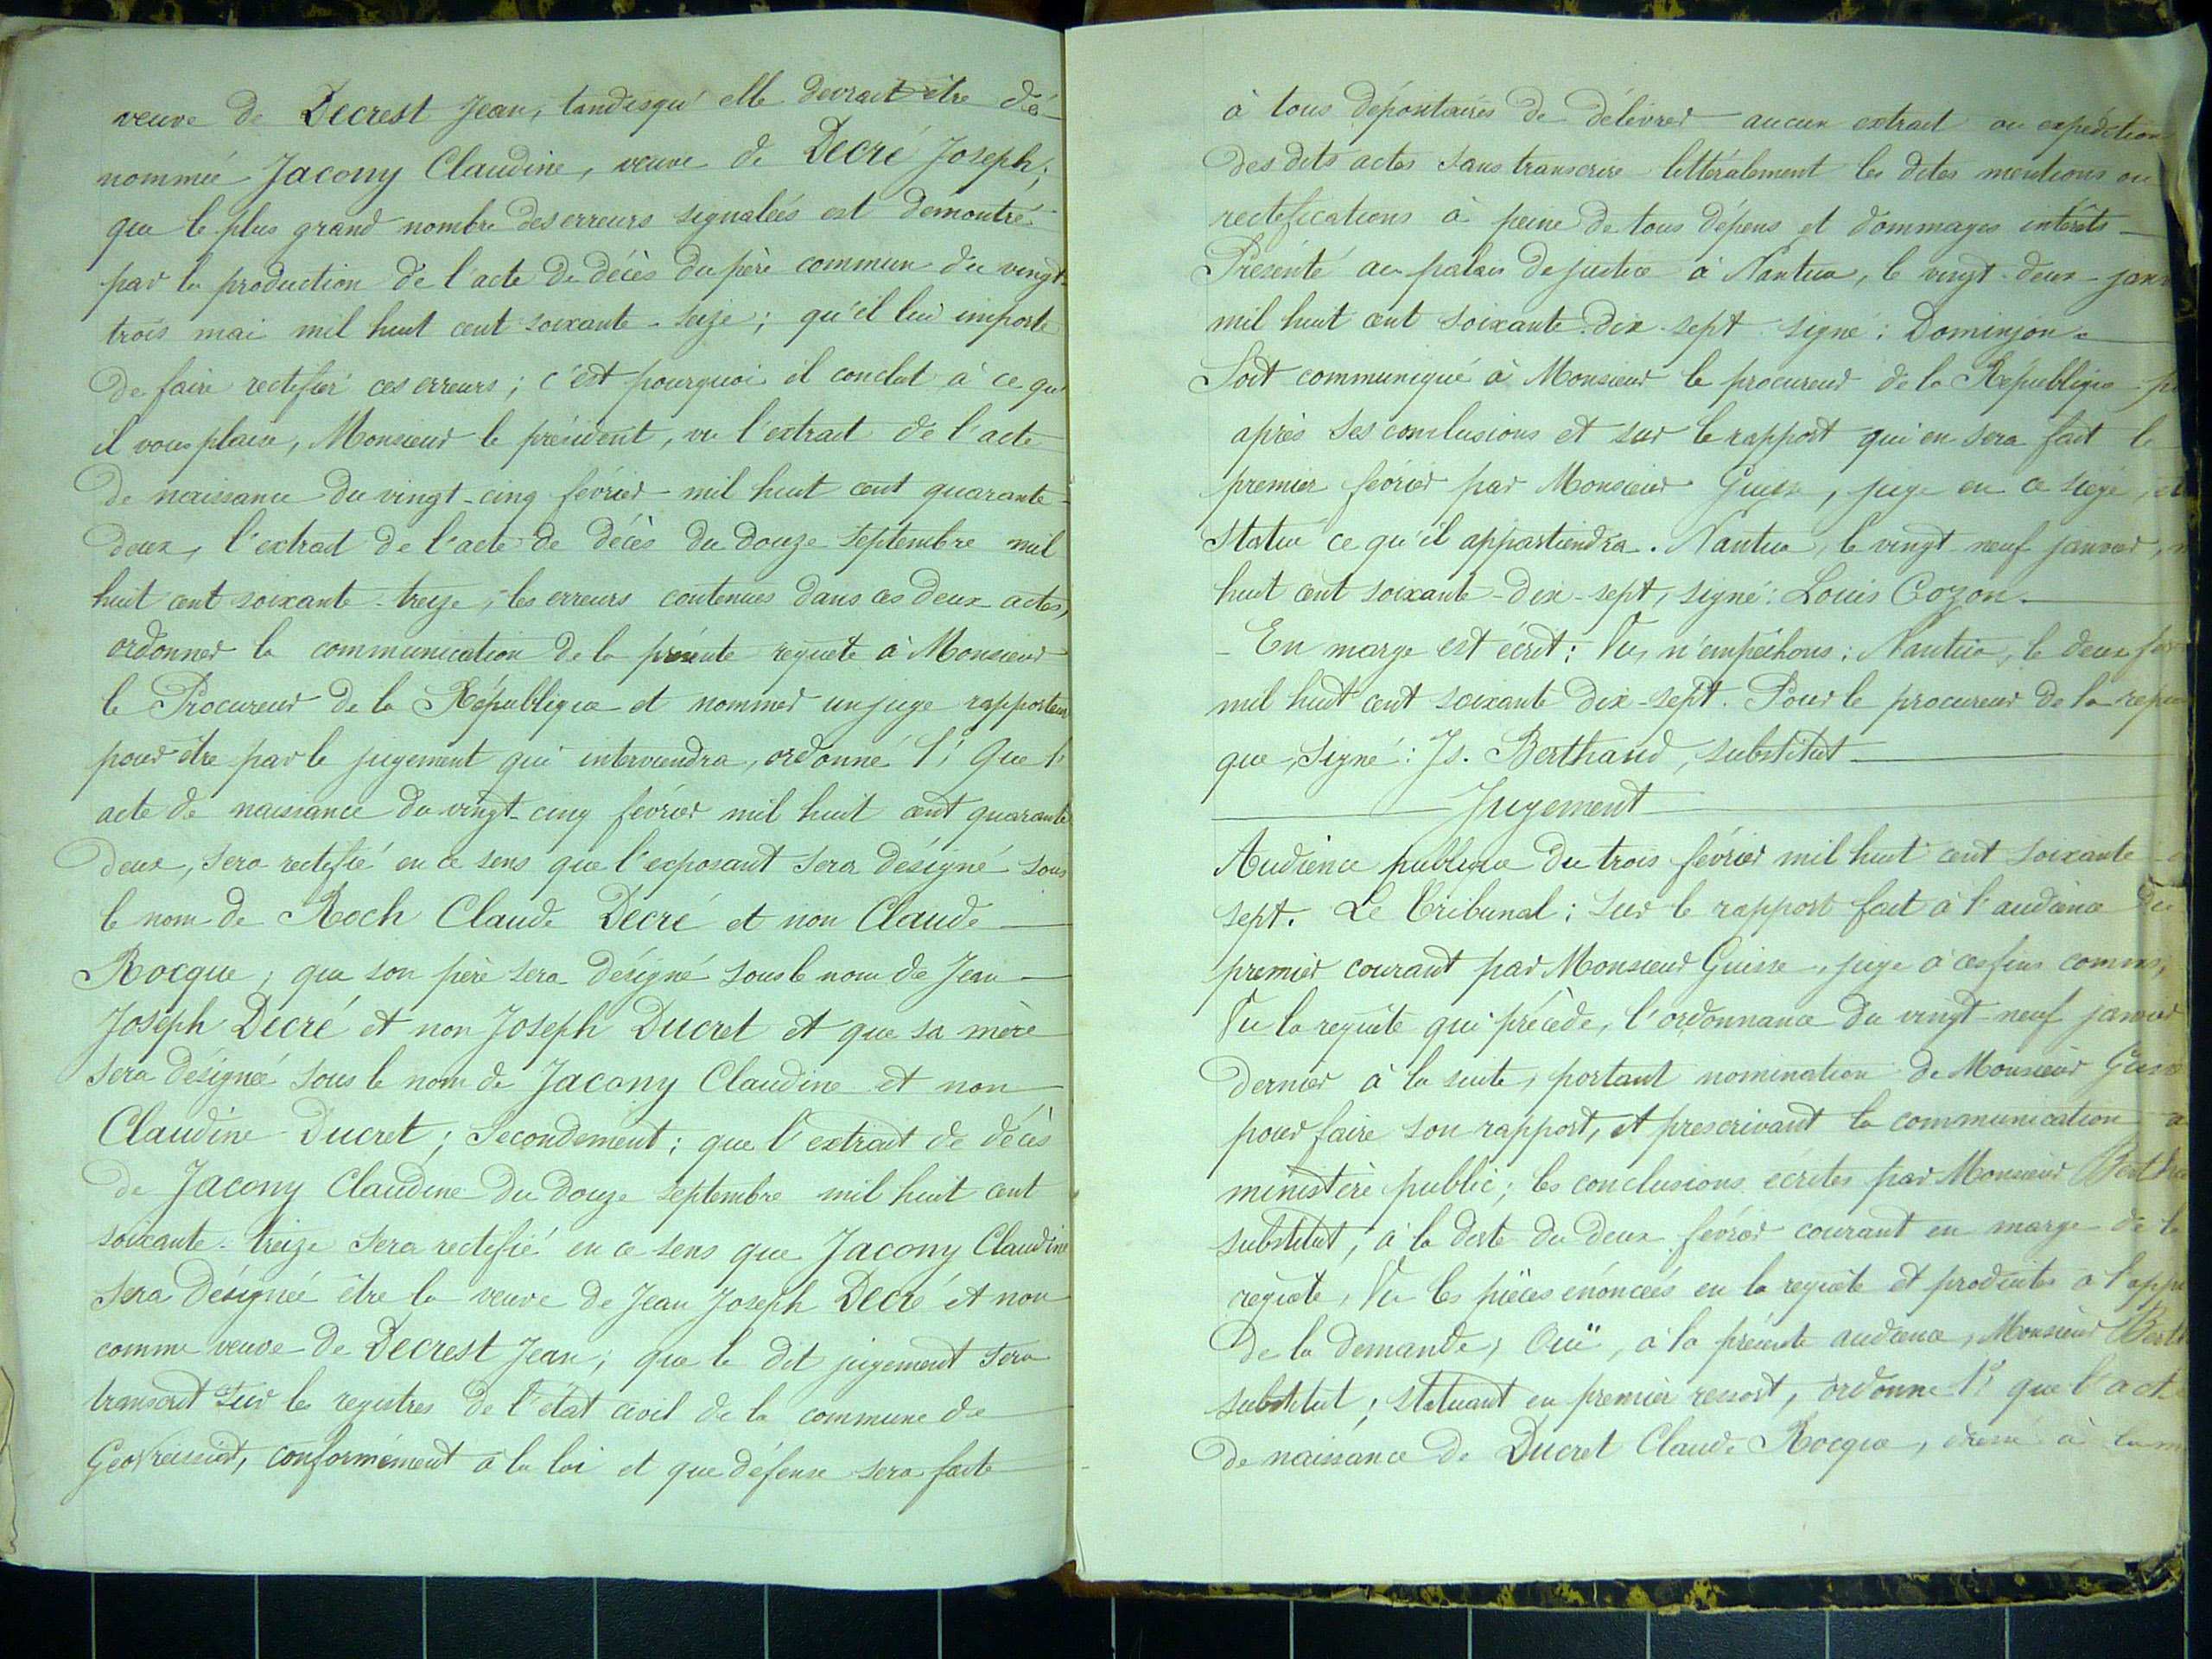 veuve de Decrest Jean, tandisqu'elle devrait être dé-
nommée Jacony Claudine, veuve de Decré Joseph;
que le plus grand nombre des erreurs signalées est démontré
par la production de l'acte de décès du père commun du vingt-
trois mai mil huit cent soixante-seize; qu'il lui importe
de faire rectifier ces erreurs; c'est pourquoi il conclut à ce qu'
il vous plaise, Monsieur le président, vu l'extrait de l'acte
de naissance du vingt-cinq février mil huit cent quarante-
deux, l'extrait de l'acte de décès du douze septembre mil
huit cent soixante-treize, les erreurs contenues dans ces deux actes,
ordonner la communication de la présente requête à Monsieur
le Procureur de la République et nommer un juge rapporteur
pour être par le jugement qui interviendra, ordonné 1° Que l'
acte de naissance du vingt-cinq février mil huit cent quarante
deux, sera rectifié en ce sens que l'exposant sera désigné sous
le nom de Roch Claude Decré et non Claude
Rocque; que son père sera désigné sous le nom de Jean
Joseph Decré et non Joseph Ducret et que sa mère
sera désignée sous le nom de Jacony Claudine et non
Claudine Ducret; Secondement: que l'extrait de décès
de Jacony Claudine du douze septembre mil huit cent
soixante-treize sera rectifié en ce sens que Jacony Claudine
sera désignée être la veuve de Jean Joseph Decré et non
comme veuve de Decrest Jean; que le dit jugement sera
transcrit sur les registres de l'état civil de la commune de
Geovreissiat, conformément à la loi et que défense sera faite
à tous dépositaires de délivrer aucun extrait ou expédition
des dits actes sans transcrire littéralement les dites mentions ou
rectifications à peine de tous dépens et dommages intérêts
Présenté au palais de justice à Nantua, le vingt-deux janv
mil huit cent soixante-dix-sept signé: Dominjon.
Soit communiqué à Monsieur le procureur de la République
après ses conclusions et sur le rapport qui en sera fait le
premier février par Monsieur Guisse, juge en ce siège,
statué ce qu'il appartiendra. Nantua, le vingt-neuf janvier,
huit cent soixante-dix-sept, signé: Louis Cozon.
- En marge est écrit: Vu, n'empêchons: Nantua, le deux fév
mil huit cent soixante dix-sept. Pour le procureur de la répu
que, signé: Js. Berthaud, substitut
Jugement
Audience publique du trois février mil huit cent soixante-
sept. Le Tribunal: Sur le rapport fait à l'audience du
premier courant par Monsieur Guisse, juge à ces fins commis,
Vu la requête qui précède, l'ordonnance du vingt-neuf janvier
dernier à la suite, portant nomination de Monsieur Guisse
pour faire son rapport, et prescrivant la communication a
ministère public; les conclusions écrites par Monsieur Bertha
substitut, à la date du deux février courant en marge de la
requête, Vu les pièces énoncées en la requête et produites à l'appu
de la demande; Ouï, à la présente audience, Monsieur Berth
substitut; statuant en premier ressort, ordonne 1° que l'acte
de naissance de Ducret Claude Rocque, dressé à la m